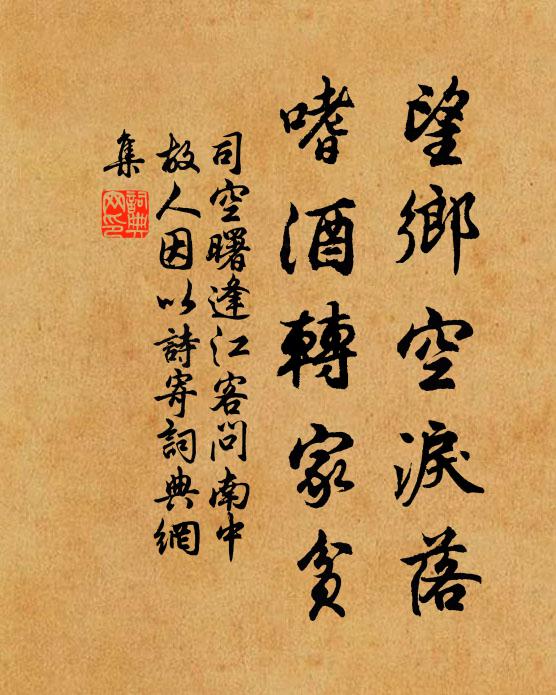 望鄉空淚落
嗜酒轉家貧
司空曙逢江客問南中
故人因以詩寄詞典網
集
詞典網印